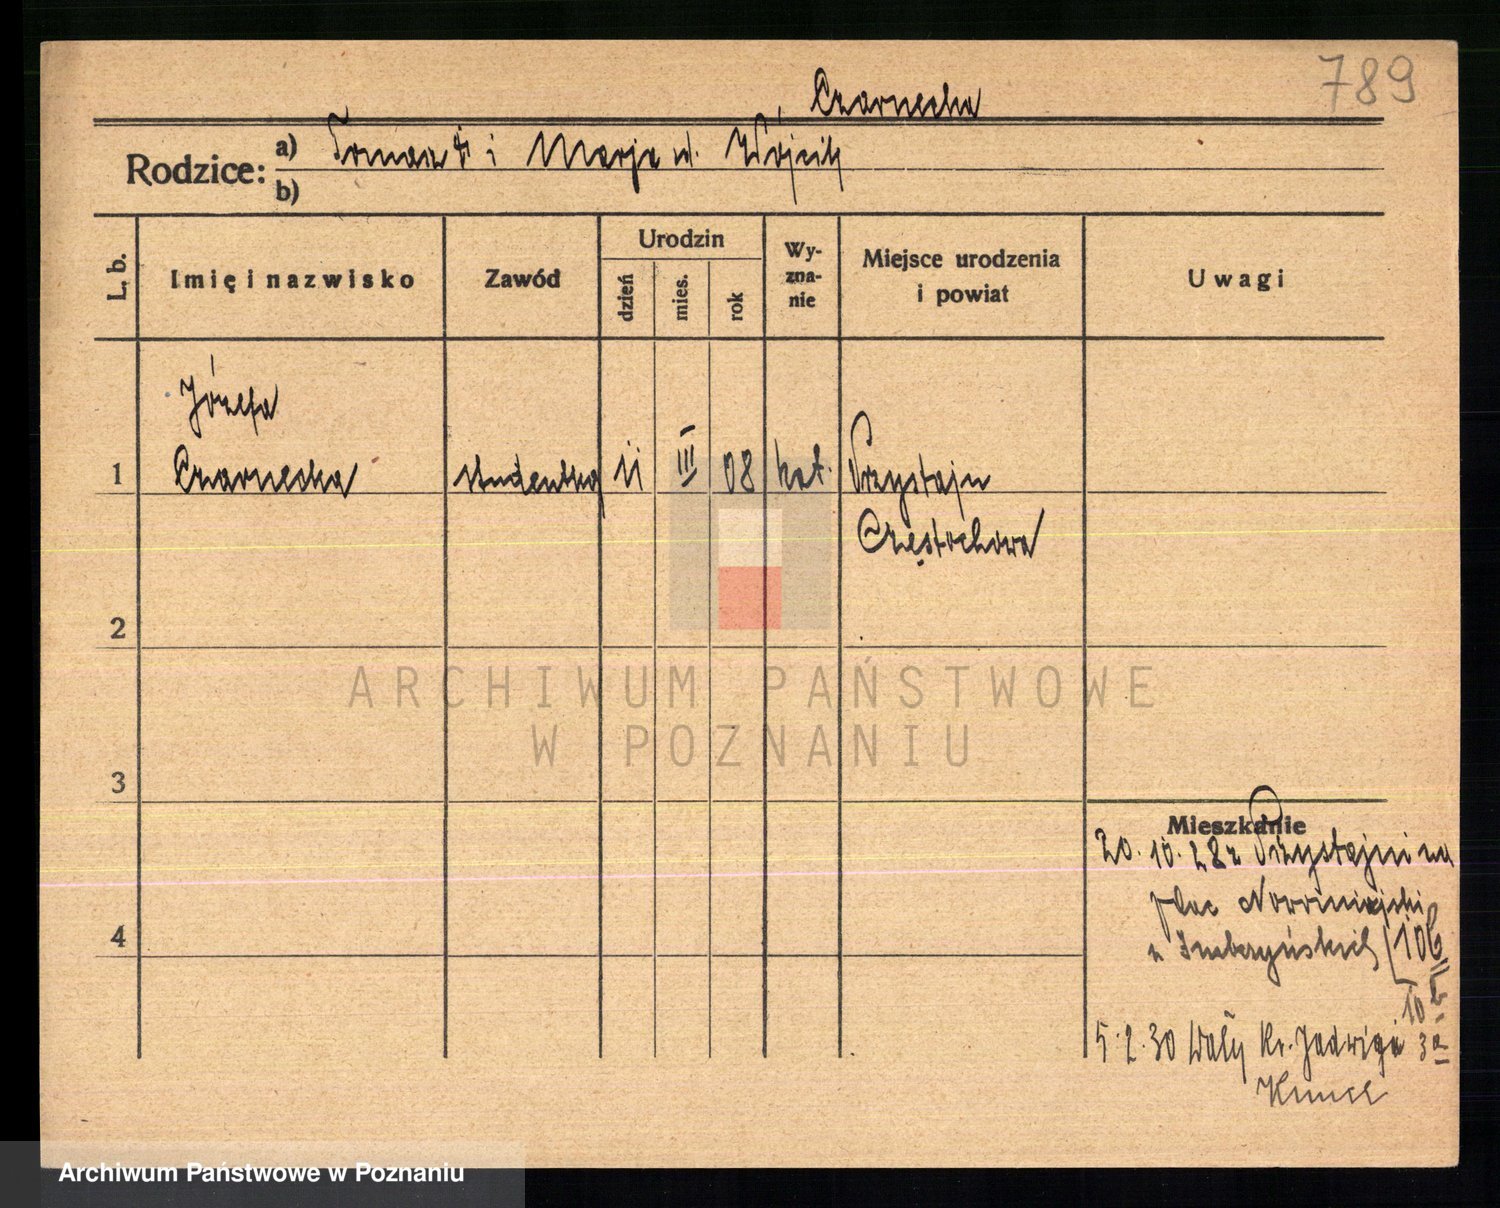 789
Czarnecka
Rodzice: a) Tomasz i Marja d. Wójcik
b)
L. b.
Imię i nazwisko
Zawód
Urodzin
dzień
mies.
rok
Wy-
zna-
nie
Miejsce urodzenia
i powiat
Uwagi
Józefa
1 Czarnecka studentka 11 III 08 kat. Przystajn
Częstochowa
2
3
4
Mieszkanie
20.10.28 z Przystajni na
plac Nowomiejski
10 b
10 b
5.2.30 Wały Kr. Jadwigi 3a
ARCHIWUM PAŃSTWOWE
W POZNANIU
Archiwum Państwowe w Poznaniu